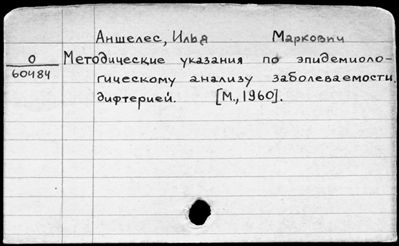 Аншелес, Илья Маркович
О Методические указания по эпидемиоло-
60484 гическому анализу заболеваемости
дифтерией. [М., 1960].